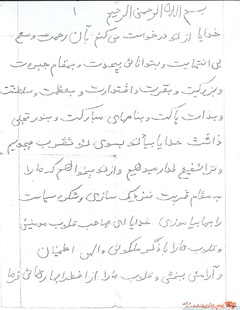 بسم الله الرحمن الرحیم ۱
خدایا از تو درخواست می‌کنم بآن رحمت وسیع
بی انتهایت و بتوانائی بیچونت و بمقام جبروت
و بزرگیت و بقدرت و اقتدارت و بعظمت و سلطنتت
و بذات پاکت و بنامهای مبارکت و بنور تجلی
خدایا بیاد تو بسوی تو تقرب میجویم
و ترا شفیع قرار میدهم و از تو میخواهم که مارا
به مقام قربت نزدیک سازی و شکر و سپاست
را بما بیاموزی خدایا ای صاحب قلوب مومنین
قلوب مارا با ذکر ملکوتی اطمینان
و آرامش ببخش و قلوب مارا از اضطرابها رهائی